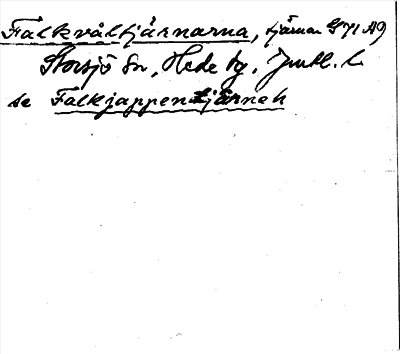 Falkvåltjärnarna, tjärnar G 71 A9
Storsjö sn, Hede tg, Jmtl. l.
se Falkjappentjärneh